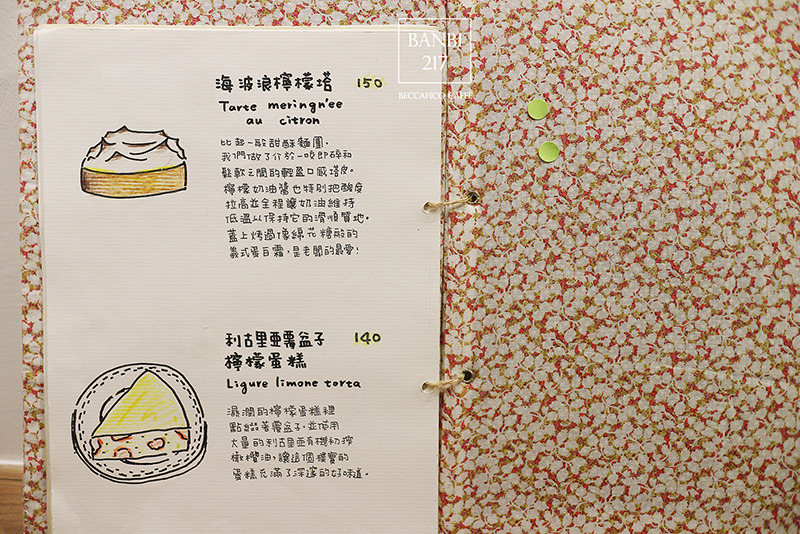 BANBI
217
BECCAFICO CAFFÈ
海波浪檸檬塔 150
Tarte meringn'ee
au citron
比起一般甜酥麵團，
我們做了介於一咬即碎和
鬆軟之間的輕盈口感塔皮。
檸檬奶油醬也特別把酸度
拉高並全程讓奶油維持
低溫以保持它的滑順質地。
蓋上烤過像綿花糖般的
義式蛋白霜，是老闆的最愛！
利古里亞覆盆子 140
檸檬蛋糕
Ligure limone torta
濕潤的檸檬蛋糕裡
點綴著覆盆子，並使用
大量的利古里亞有機初榨
橄欖油，讓這個樸實的
蛋糕充滿了深邃的好味道。